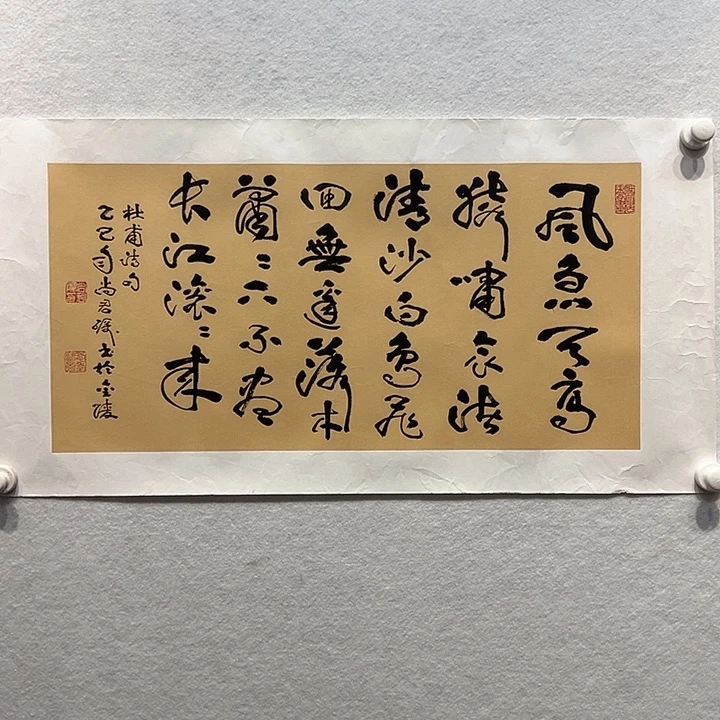 風急天高
猿嘯哀渚
清沙白鳥飛
囬無邊落木
蕭〻下不盡
長江滾〻來
杜甫詩句
乙巳 尚君 书於金陵